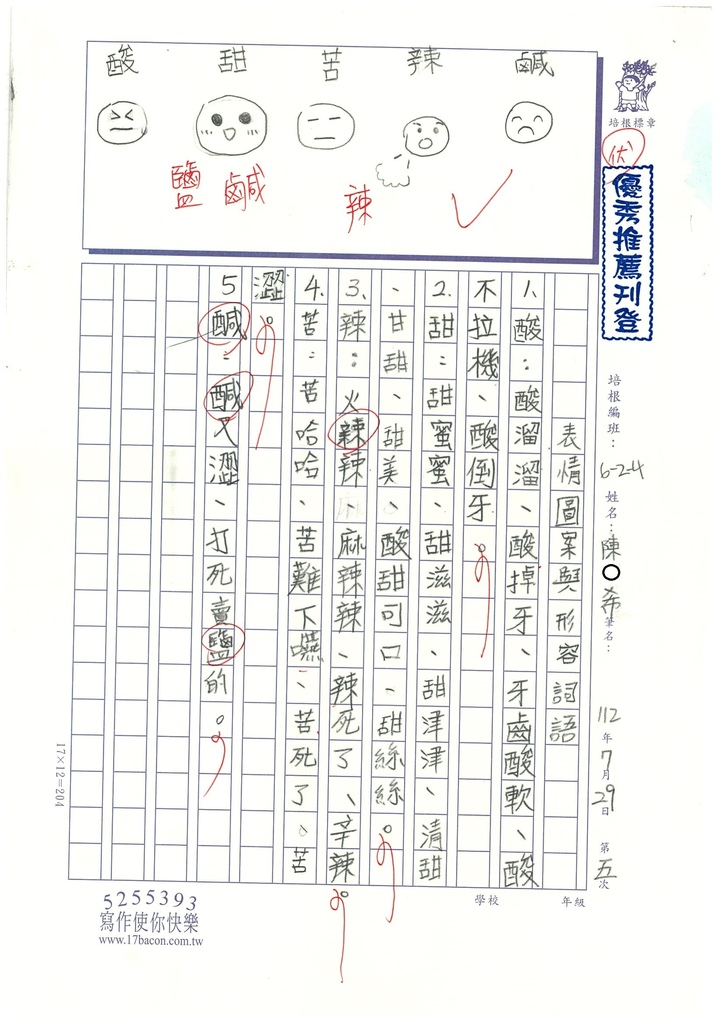 酸 甜 苦 辣 鹹
鹽 鹹 辣
培根標章
伏
優秀推薦刊登
培根編班：6-2-4 姓名：陳○希 筆名： 112年7月29日 第五次
表情圖案與形容詞語
1、酸：酸溜溜、酸掉牙、牙齒酸軟、酸
不拉機、酸倒牙。
2、甜：甜蜜蜜、甜滋滋、甜津津、清甜
、甘甜、甜美、酸甜可口、甜絲絲。
3、辣：火辣辣、麻辣辣、辣死了、辛辣。
4、苦：苦哈哈、苦難下嚥、苦死了、苦
澀。
5 鹹：鹹又澀、打死賣鹽的。
17×12=204
學校 年級
5255393
寫作使你快樂
www.17bacon.com.tw